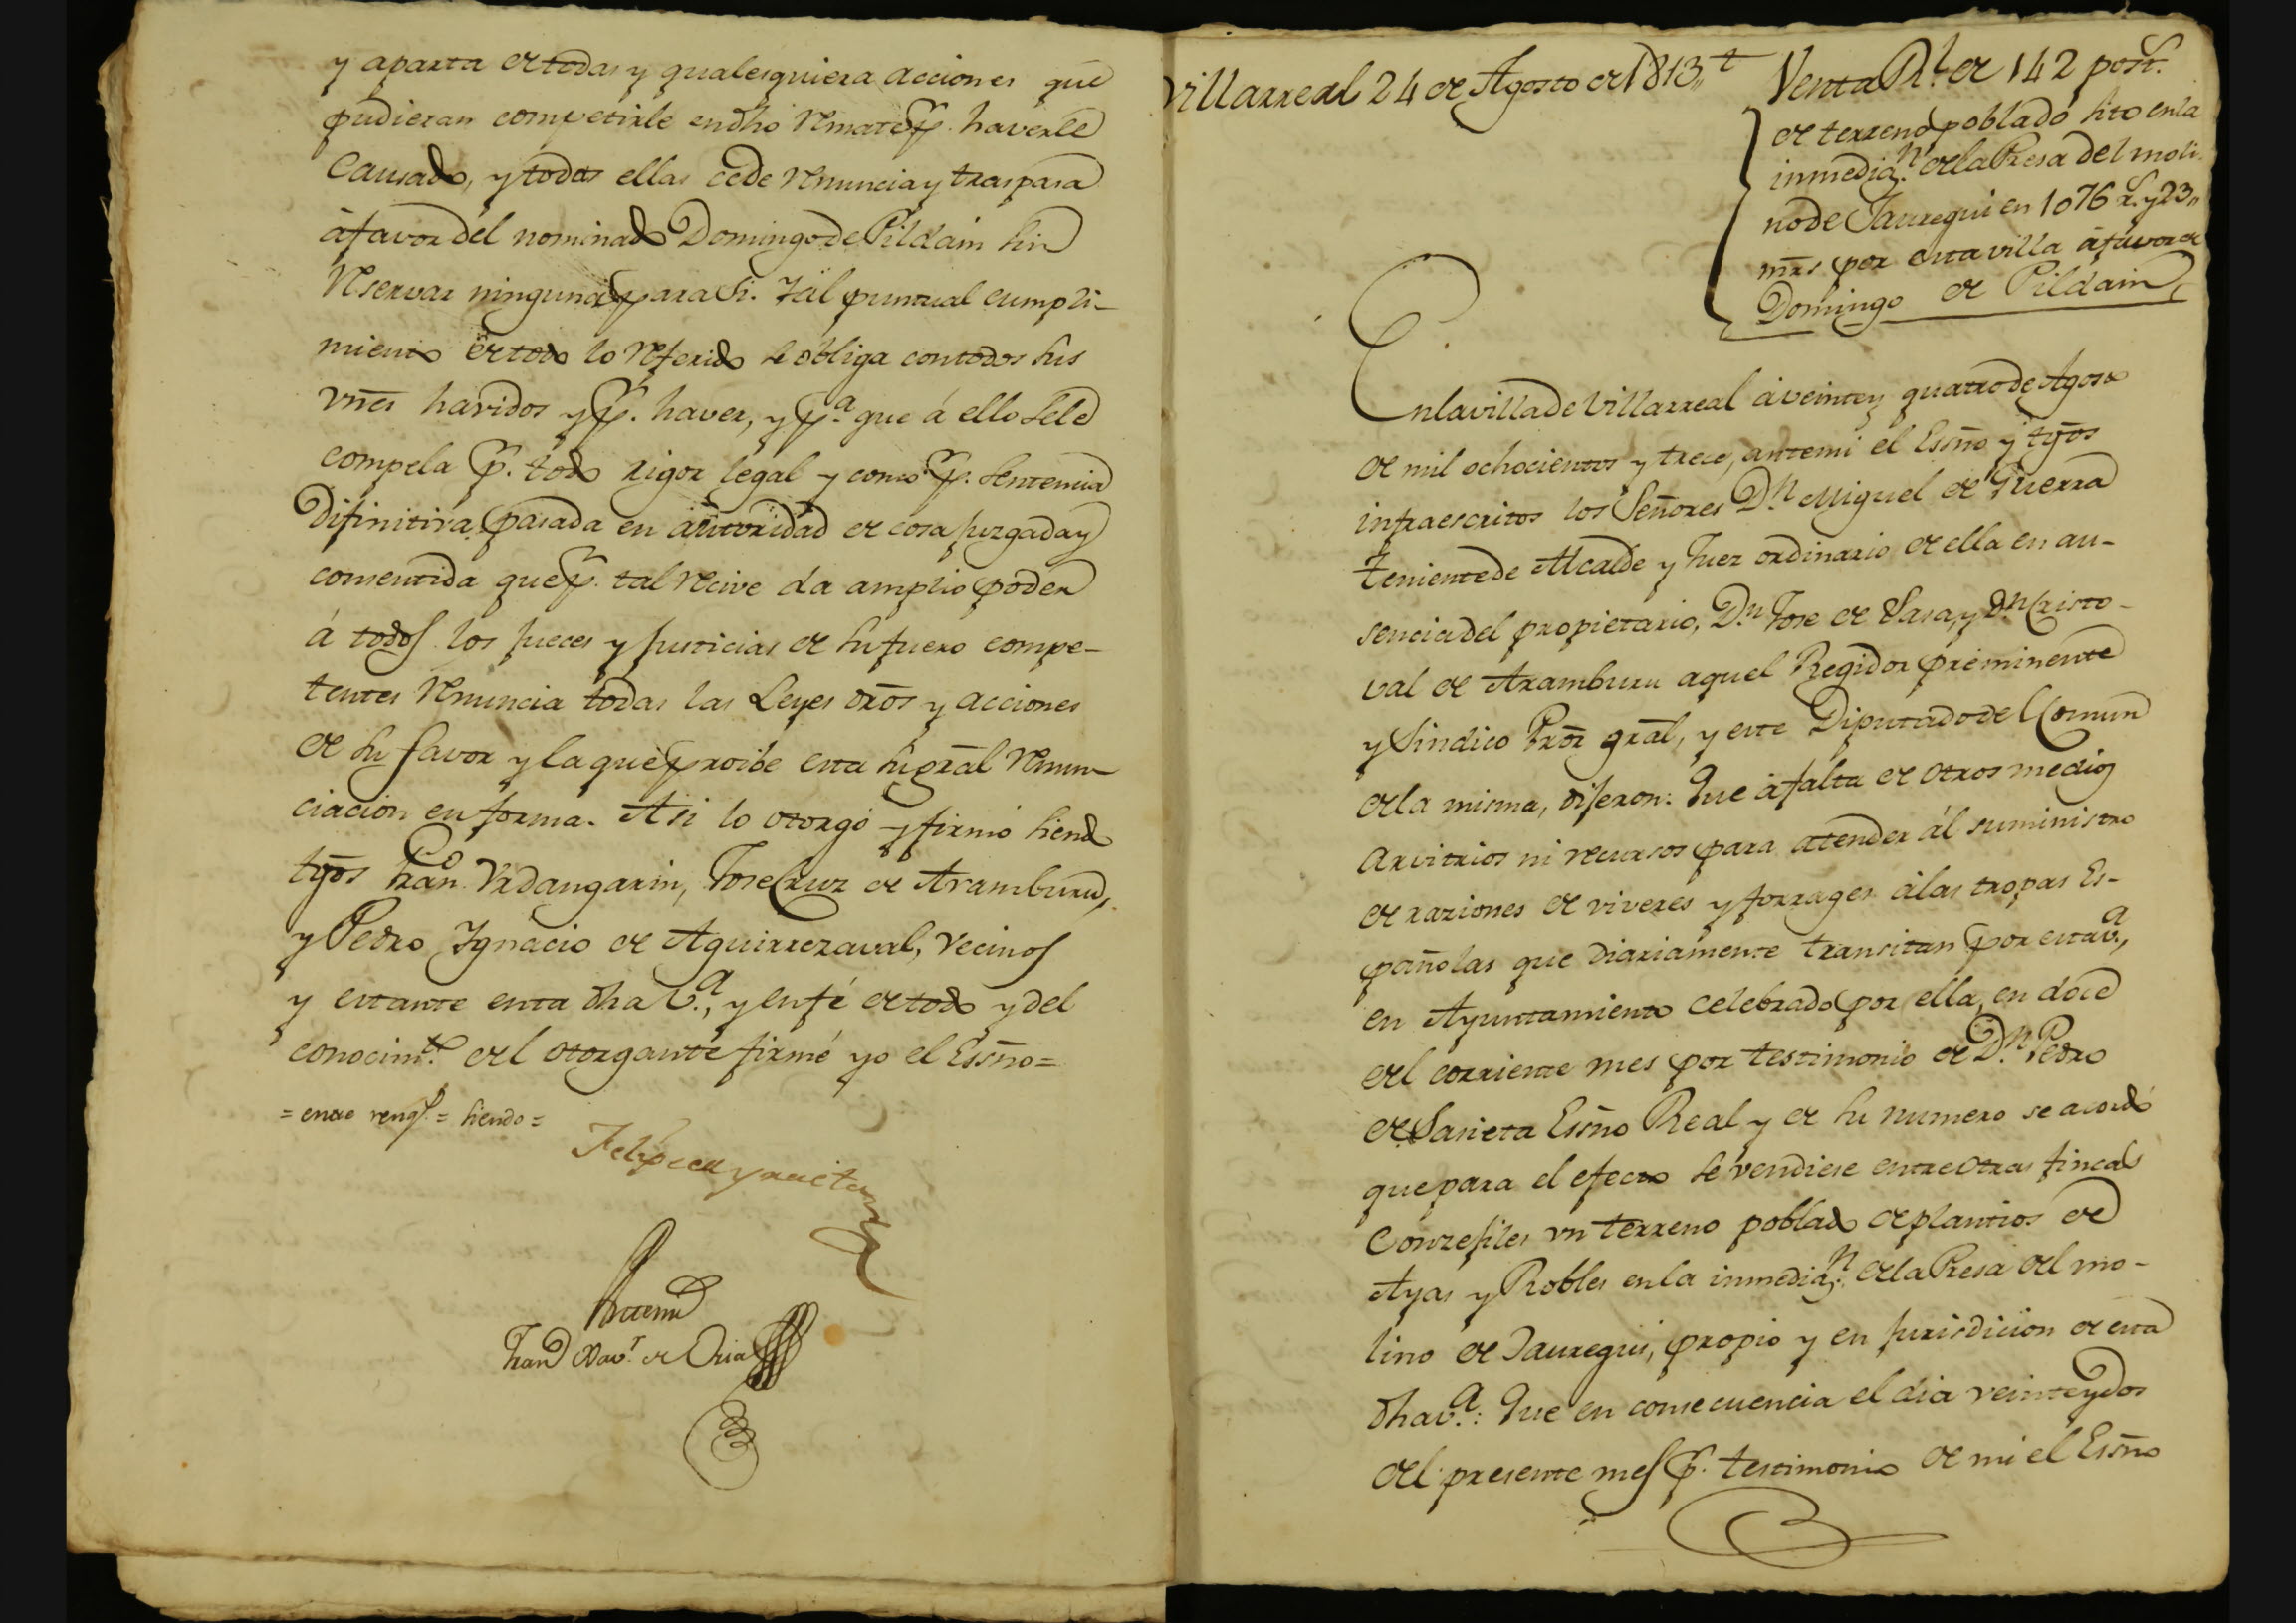 y aparta de todas y qualesquiera acciones que
pudieran competirle en dho Remate p.r haverle
Causado, y todas ellas cede Renuncia y traspasa
á favor del nominado Domingo de Pildain sin
Reservar ninguna para si. Y al puntual cumpli-
miento de todo lo Referido se obliga con todos sus
vnes havidos y p.r haver, y p.a que á ello se le
compela p.r todo rigor legal y como p.r Sentencia
Difinitiva pasada en autoridad de cosa juzgada y
consentida que p.r tal Recive da amplio poder
á todos los jueces y justicias de su fuero compe-
tentes Renuncia todas las Leyes dros y acciones
de su favor y la que proibe esta su gral Renun-
ciacion en forma. Asi lo otorgó y firmó siendo
tgos Fran.co Vrdangarin, Jose Cruz de Aramburu,
y Pedro Ygnacio de Aguirrezaval, Vecinos
y estante en ta dha V.a, y en fé de todo y del
conocim.to del otorgante firmé yo el Essno=
= entre reng.s = siendo =
Antemi
Fran.co Xav.r de Oria
Villarreal 24 de Agosto de 1813,,
Venta R.l de 142 post.s
de terreno poblado sito en la
inmedia.n de la Presa del moli-
no de Jauregui en 1076 r.s y 23,,
mrs por esta villa á favor de
Domingo de Pildain
En la villa de Villarreal á veinte y quatro de Agosto
de mil ochocientos y trece, antemi el Essno y tgos
infraescritos los Señores D.n Miguel de Guerra
teniente de Alcalde y Juez ordinario de ella en au-
sencia del propietario, D.n Jose de Sasa, y D.n Cristo-
val de Aramburu aquel Regidor preminente
y Sindico Pror gral, y este Diputado del Comun
de la misma, dijeron: Que á falta de otros medios
arvitrios ni recursos para atender ál suministro
de raziones de viveres y forrages á las tropas Es-
pañolas que diariamente transitan por esta v.a,
en Ayuntamiento celebrado por ella, en doce
del corriente mes por testimonio de D.n Pedro
de Sasieta Essno Real y de su numero se acordó
que para el efecto se vendiese entre otras fincas
Conzejiles vn terreno poblado de plantios de
Ayas y Robles en la inmedia.n de la Presa del mo-
lino de Jauregui, propio y en jurisdicion de esta
dha v.a: Que en consecuencia el dia veinte y dos
del presente mes p.r testimonio de mi el Essno